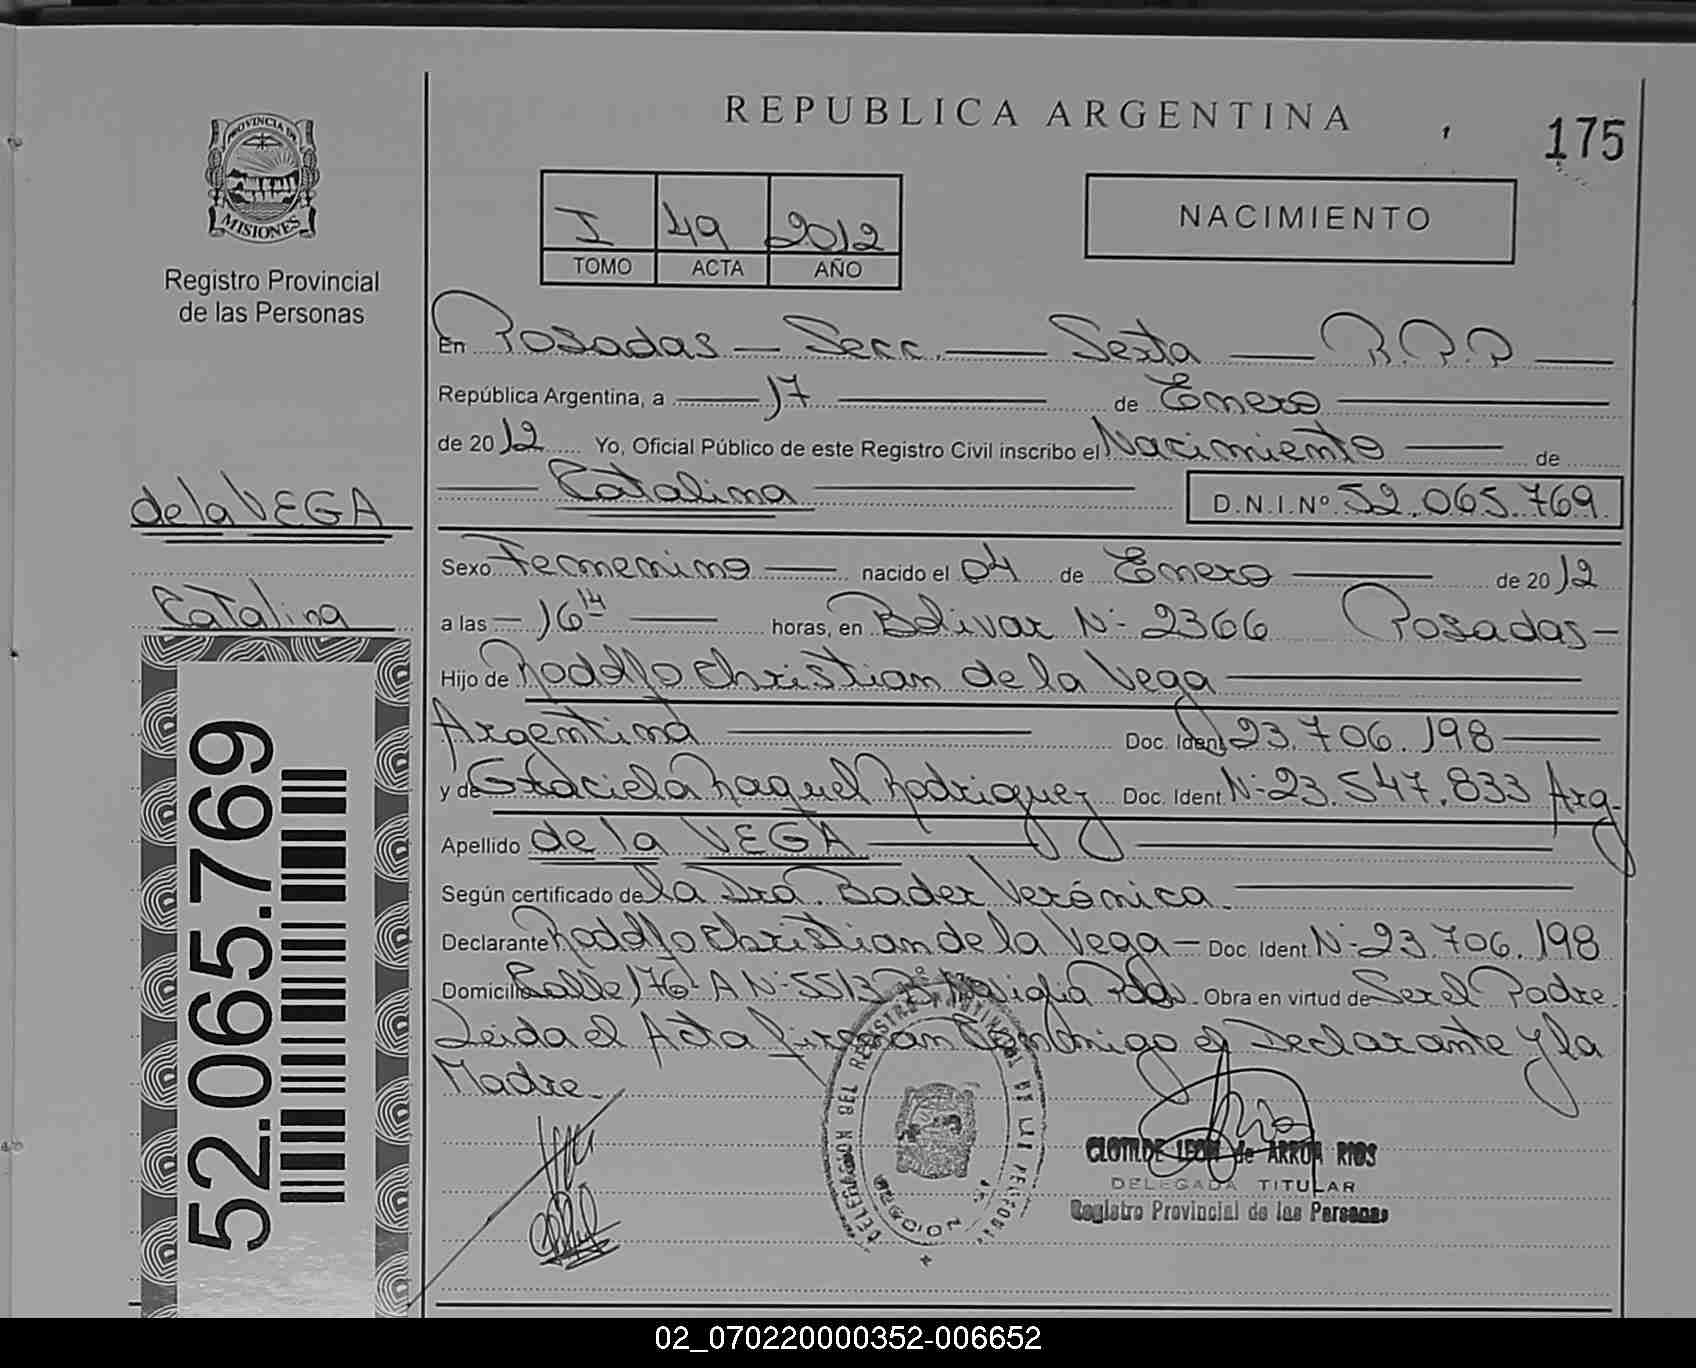 REPUBLICA ARGENTINA
175
PROVINCIA DE
MISIONES
Registro Provincial
de las Personas
I 49 2012
TOMO ACTA AÑO
NACIMIENTO
En Posadas - Secc. Sexta R.P.P
República Argentina, a 17 de Enero
de 2012 Yo, Oficial Público de este Registro Civil inscribo el Nacimiento de
Catalina D.N.I.Nº 52.065.769
de la VEGA
Catalina
52.065.769
Sexo Femenino nacido el 04 de Enero de 2012
a las - 16 14 horas, en Bolivar Nº 2366 Posadas -
Hijo de Rodolfo Christian de la Vega
Argentina Doc. Ident 23.706.198
y de Graciela Raquel Rodriguez Doc. Ident Nº 23.547.833 Arg.
Apellido de la VEGA
Según certificado de la Dra. Bader Verónica.
Declarante Rodolfo Christian de la Vega - Doc. Ident Nº 23.706.198
Domicilio Calle 176 A Nº 5513 Obra en virtud de Ser el Padre.
Leida el Acta firman Conmigo el Declarante y la
Madre.
CLOTILDE LEON de ARRUA RIOS
DELEGADA TITULAR
Registro Provincial de las Personas
02_070220000352-006652